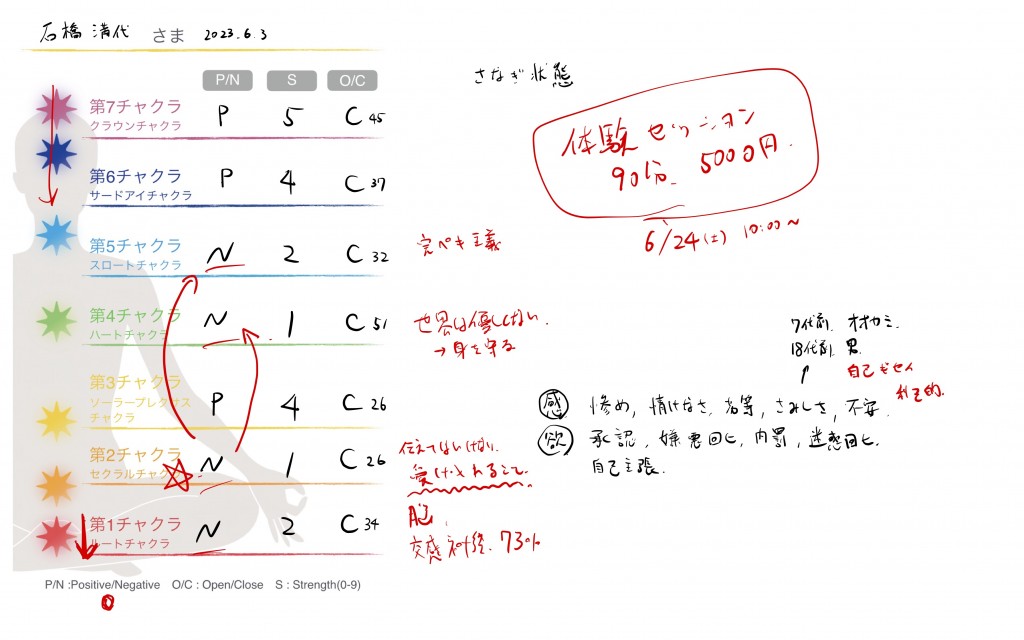 石橋 清代 さま 2023.6.3
P/N S O/C
第7チャクラ
クラウンチャクラ
P 5 C 45
第6チャクラ
サードアイチャクラ
P 4 C 37
第5チャクラ
スロートチャクラ
N 2 C 32
第4チャクラ
ハートチャクラ
N 1 C 51
第3チャクラ
ソーラープレクサス
チャクラ
P 4 C 26
第2チャクラ
セクラルチャクラ
N 1 C 26
第1チャクラ
ルートチャクラ
N 2 C 34
P/N :Positive/Negative O/C : Open/Close S : Strength(0-9)
さなぎ状態
体験セッション
90分、5000円.
6/24(土) 10:00~
完ペキ主義
世界は優しくない.
→身を守る
伝えてはいけない.
受け入れること.
脳,
交感神経. 73%
7代前. オオカミ.
18代前. 男.
↑ 自己ギセイ
利己的.
感 惨め, 情けなさ, 劣等, さみしさ, 不安.
欲 承認, 嫌悪回ヒ, 内罰, 迷惑回ヒ,
自己主張.